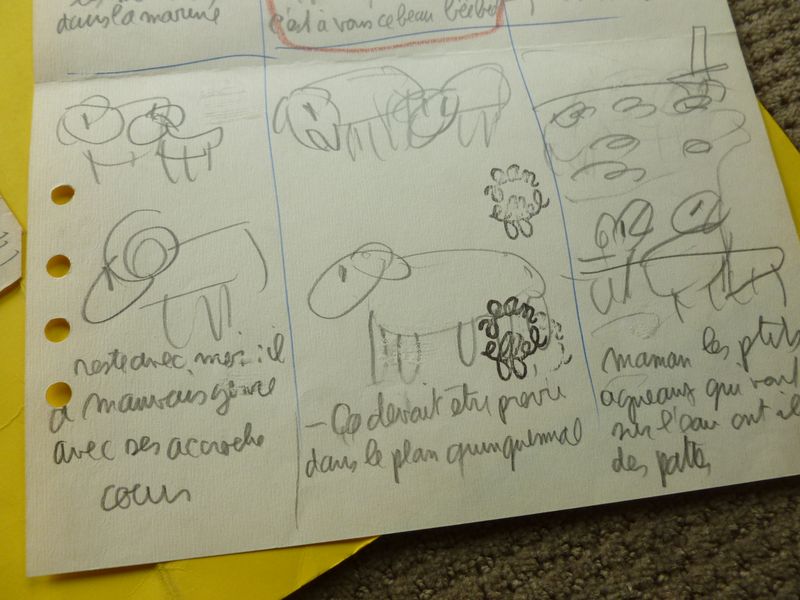 dans la marine
c'est à vous ce beau bébé
Jean
Effel
Jean
effel
reste avec moi : il
a mauvais genre
avec ses accroche
cœurs
— Ça devait être prévu
dans le plan quinquennal
maman les ptits
agneaux qui vont
sur l'eau ont il
des pattes